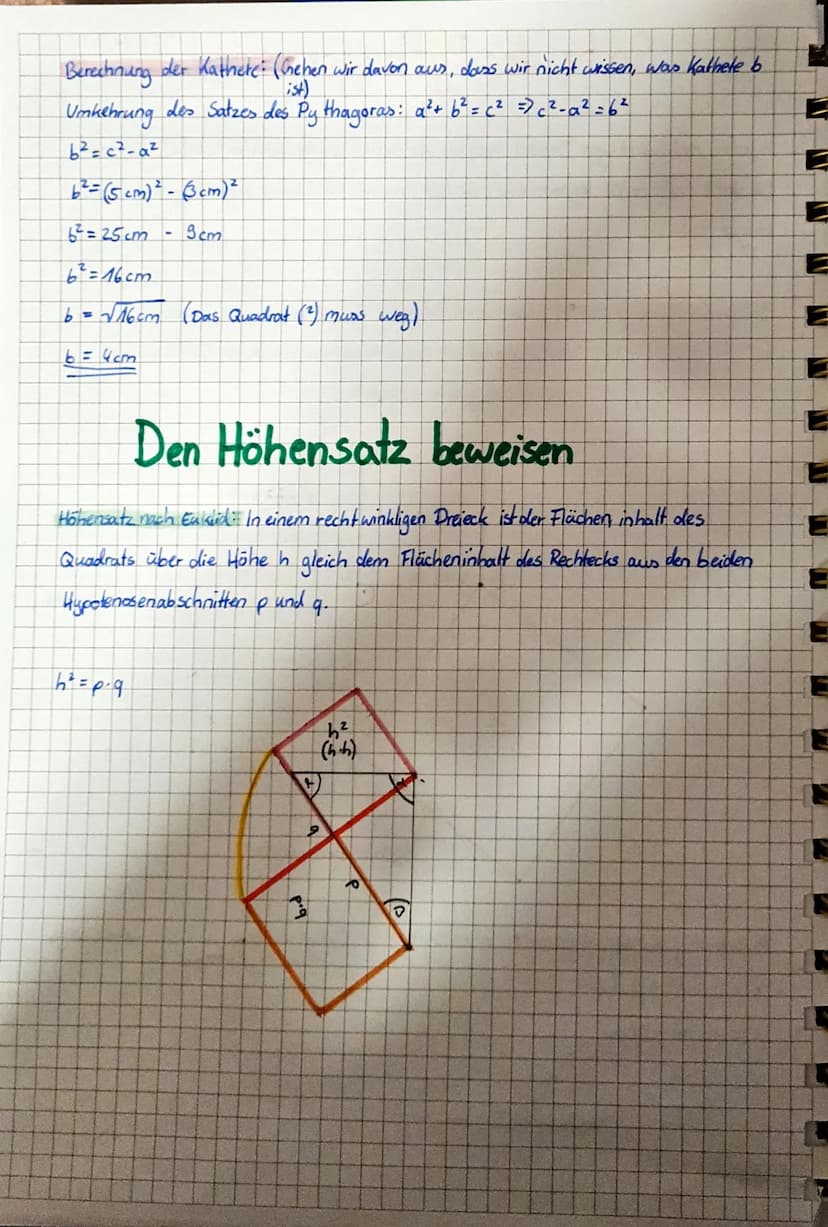 Berechnung der Kathete: (Gehen wir davon aus, dass wir nicht wissen, was Kathete b
ist)
Umkehrung des Satzes des Pythagoras: a²+ b² = c² => c² - a² = b²
b² = c² - a²
b² = (5 cm)² - (3 cm)²
b² = 25 cm - 9 cm
b² = 16 cm
b = √16 cm (Das Quadrat (²) muss weg)
b = 4 cm
Den Höhensatz beweisen
Höhensatz nach Euklid: In einem rechtwinkligen Dreieck ist der Flächeninhalt des
Quadrats über die Höhe h gleich dem Flächeninhalt des Rechtecks aus den beiden
Hypotenosenabschnitten p und q.
h² = p·q
h²
(h·h)
q
p
p·q